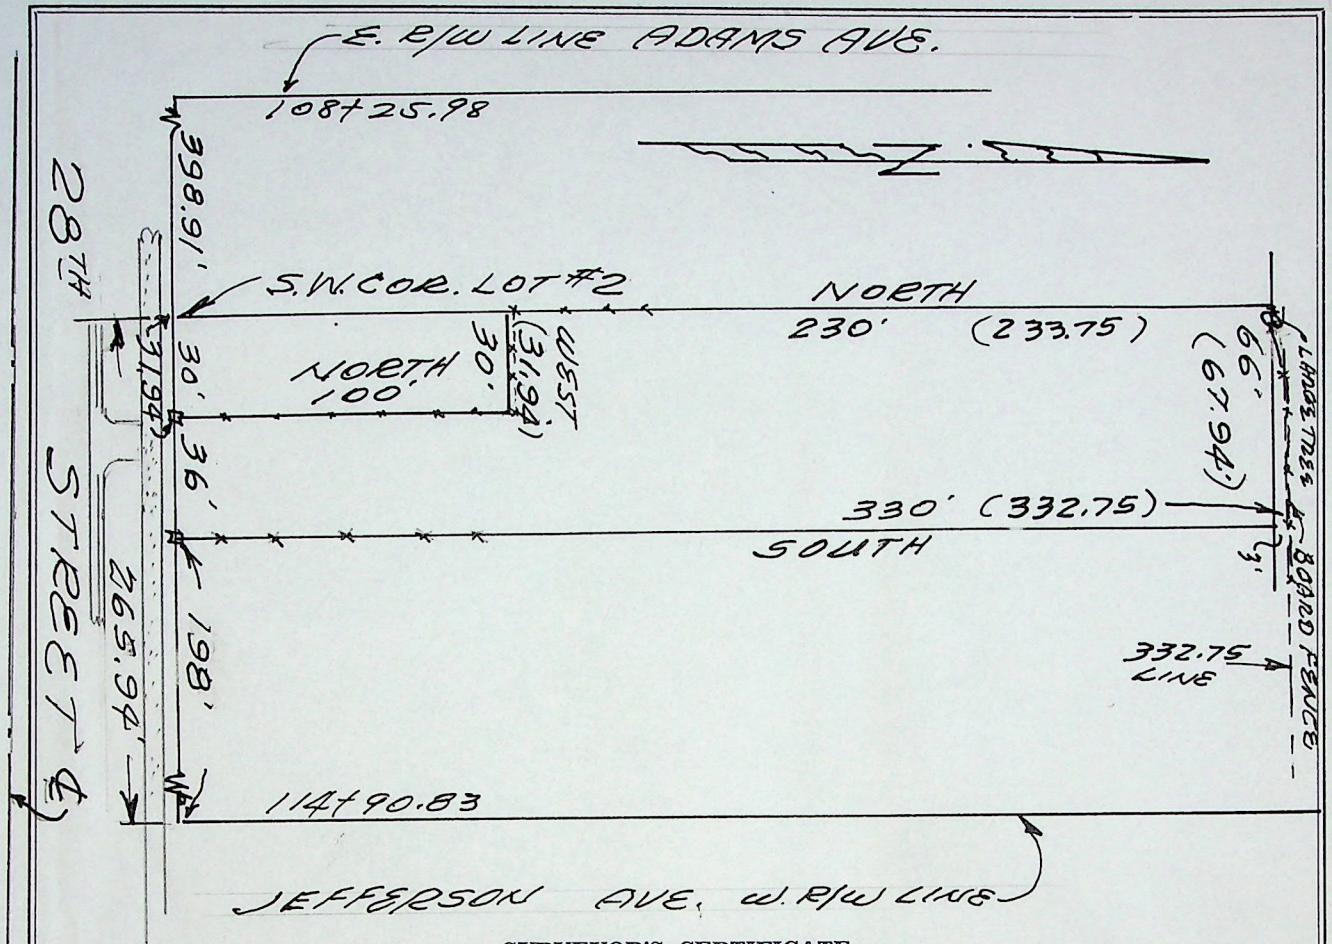 E. R/W LINE ADAMS AVE.
108+25.98
398.91'
28TH STREET ₵
S.W. COR. LOT #2
NORTH
230' (233.75)
NORTH
100'
30'
(31.94)
WEST
30'
(31.94)
36'
66'
(67.94)
LARGE TREE
BOARD FENCE
330' (332.75)
SOUTH
3'
265.94'
198'
332.75
LINE
114+90.83
JEFFERSON AVE. W. R/W LINE
SURVEYOR'S CERTIFICATE